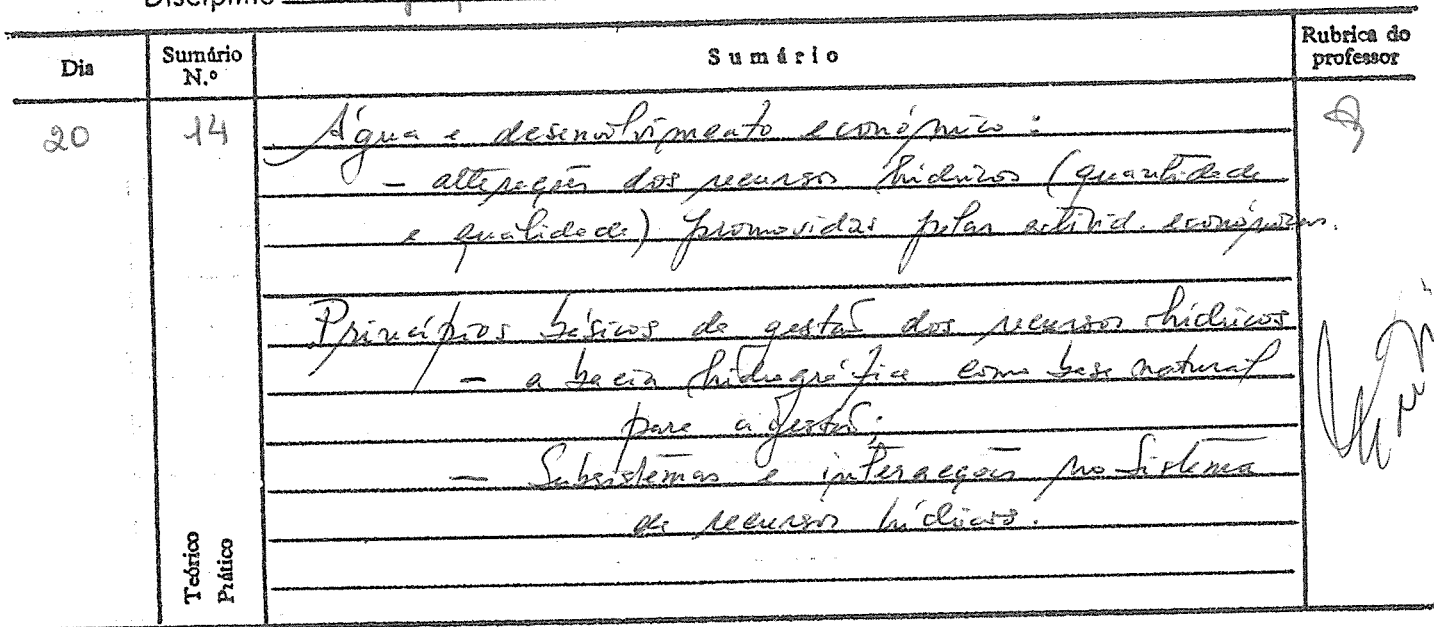 Disciplina
Dia
Sumário N.º
Sumário
Rubrica do professor
20
14
Água e desenvolvimento económico:
- alterações dos recursos hídricos (quantidade
e qualidade) promovidas pelas activid. económicas.
Princípios básicos de gestão dos recursos hídricos
- a bacia hidrográfica como base natural
para a gestão;
- Subsistemas e interacções no Sistema
de recursos hídricos.
Teórico
Prático